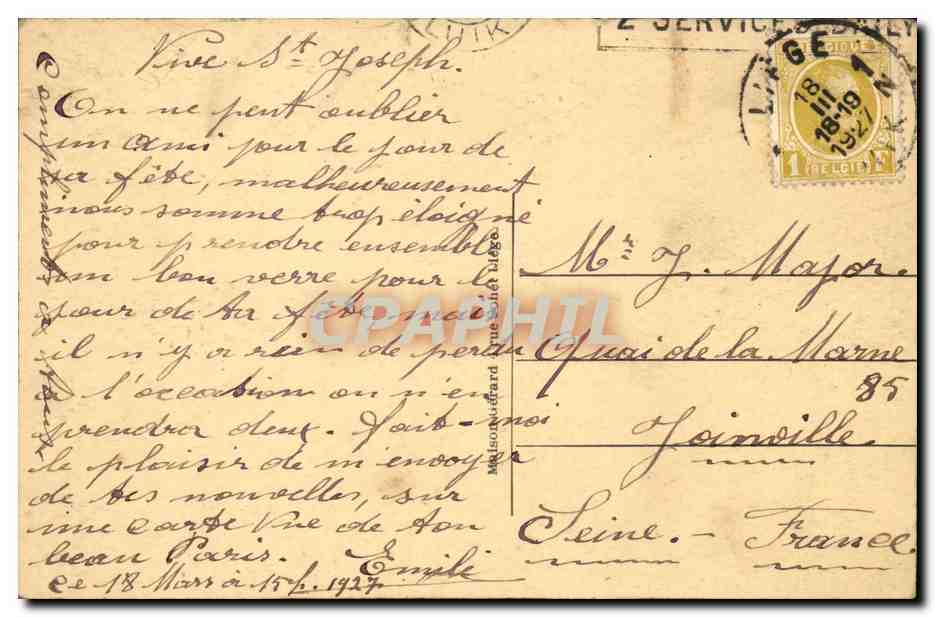 LUIK
2 SERVICES
LIEGE 1
18
III
18-19
1927
BELGIQUE
1 BELGIE F
Vive St Joseph.
On ne peut oublier
un ami pour le jour de
sa fête, malheureusement
nous somme trop éloigné
pour prendre ensemble
un bon verre pour le
jour de ta fête, mais
il n'y a rien de perdu
a l'occasion on n'en
prendra deux. fait-moi
le plaisir de m'envoyer
de tes nouvelles, sur
une carte vue de ton
beau Paris. Emile
Ce 18 Mars à 15h. 1927
Compliments a
Maison Gérard rue Liége.
Mr J. Major.
Quai de la Marne
85
Joinville
Seine. - France
CPAPHIL